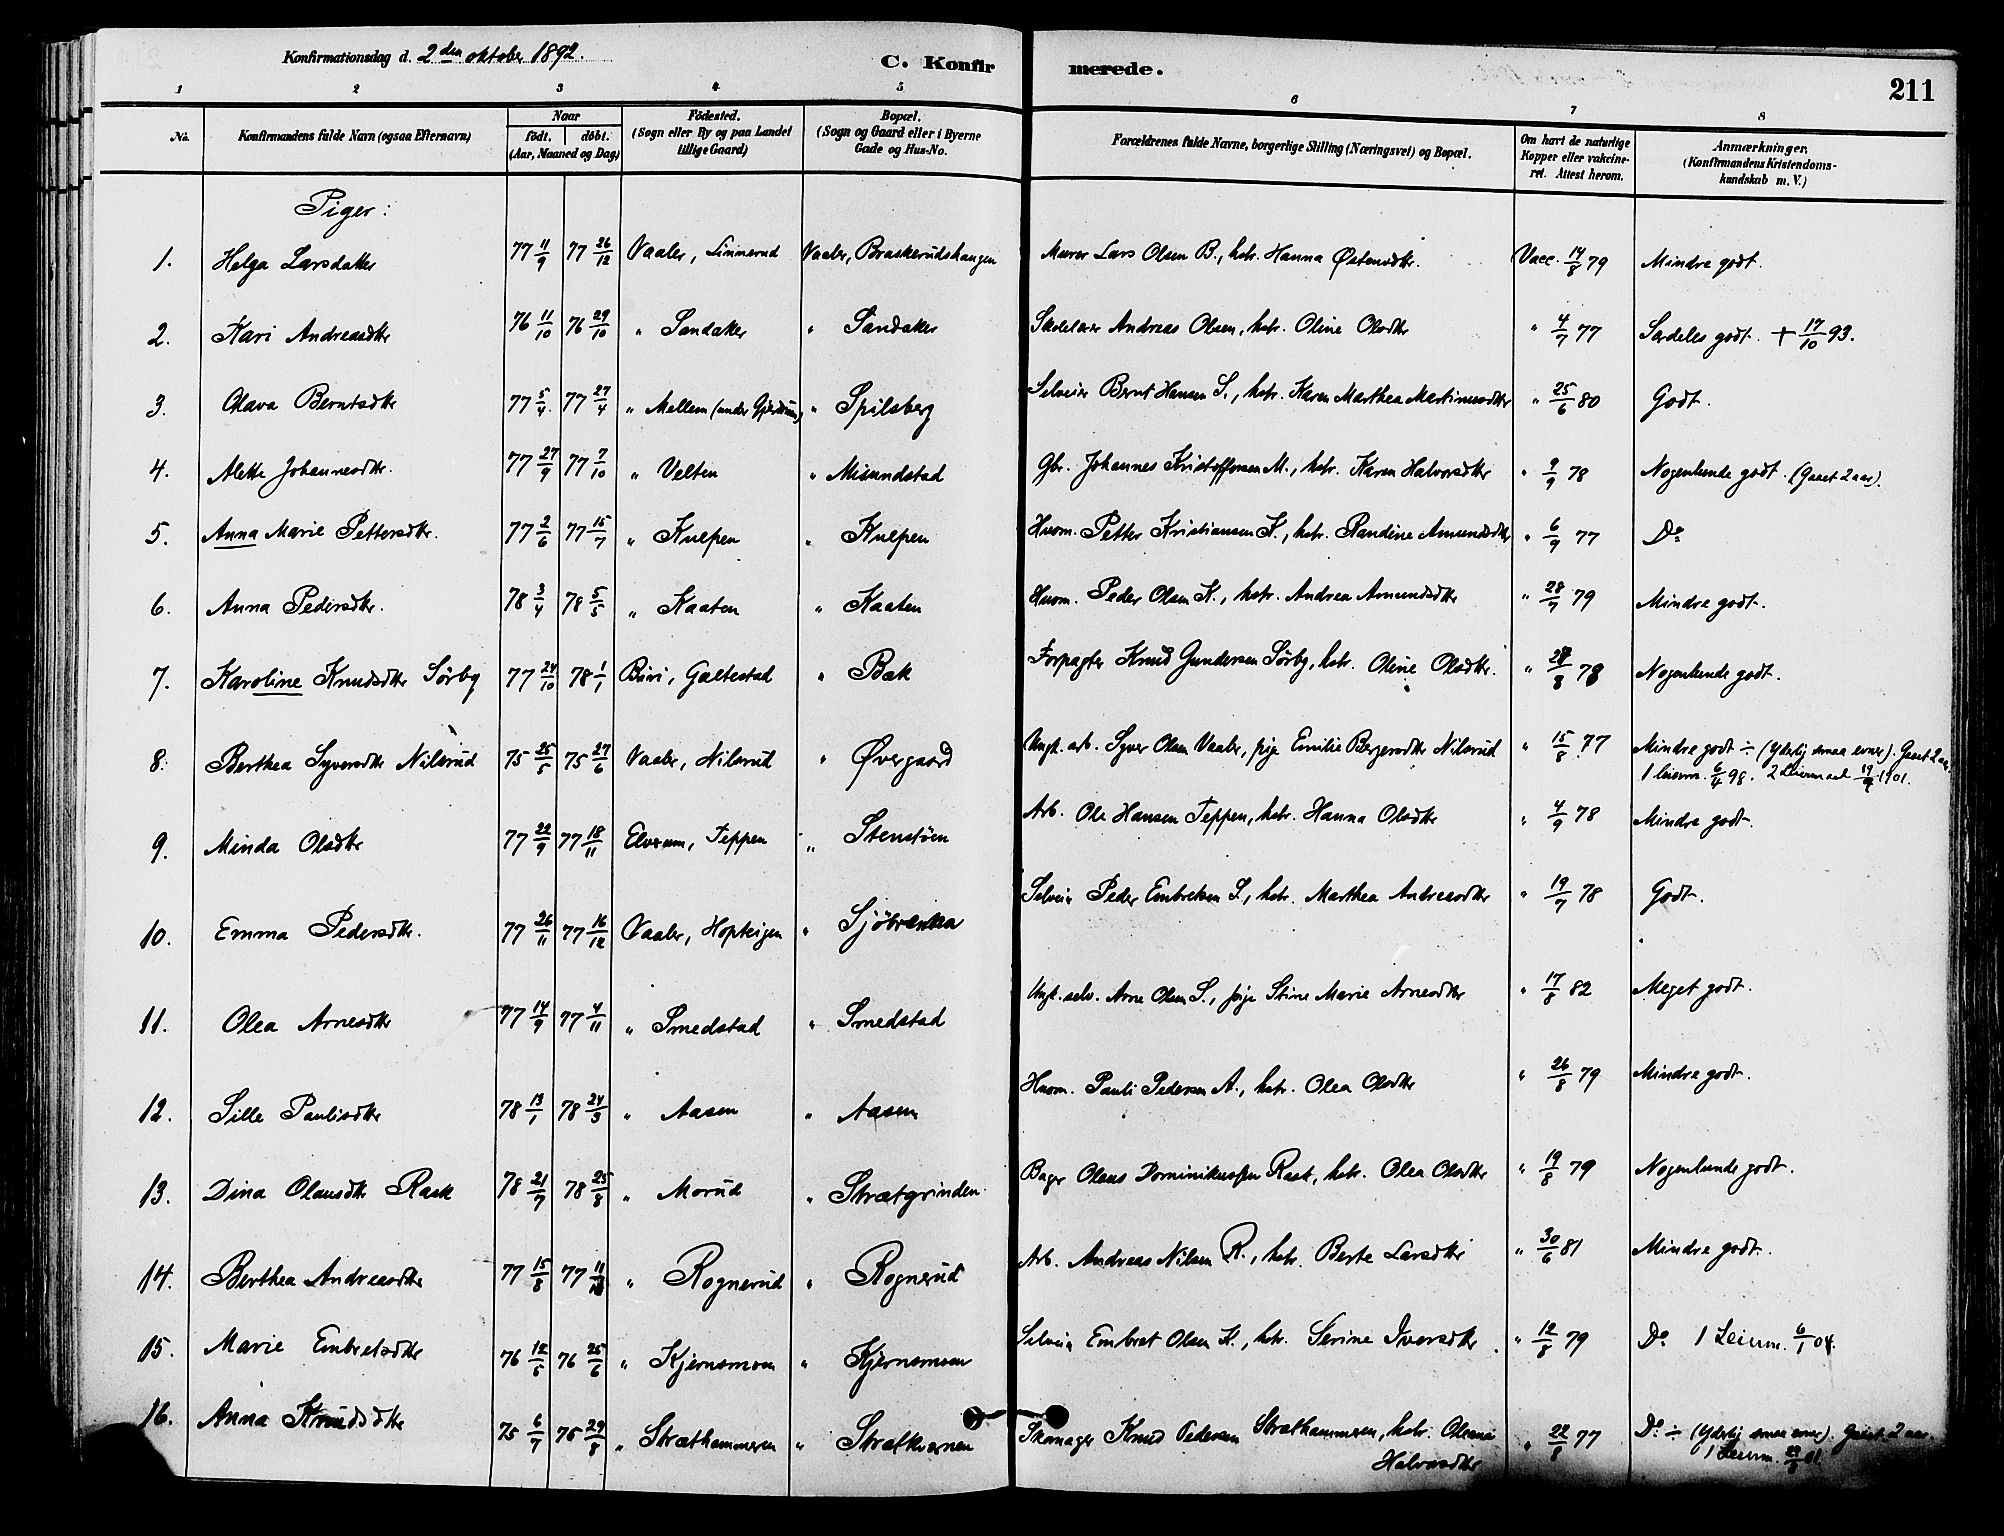 Konfirmationsdag d. 2den oktober 1892.
C. Konfirmerede.
211
1 2 3 4 5 6 7 8
No. Konfirmandens fulde Navn (ogsaa Efternavn) Naar født. døbt. (Aar, Maaned og Dag) Fødested. (Sogn eller By og paa Landet tillige Gaard) Bopæl. (Sogn og Gaard eller i Byerne Gade og Hus-No. Forældrenes fulde Navne, borgerlige Stilling (Næringsvei) og Bopæl. Om havt de naturlige Kopper eller vakcineret. Attest herom. Anmærkninger. (Konfirmandens Kristendomskundskab m. V.)
Piger:
1. Helga Larsdatter 77 11/9 77 26/12 Vaaler, Linnerud Vaaler, Braskerudshaugen Murer Lars Olsen B., hstr. Hanna Østensdtr. Vacc. 14/8 79 Mindre godt.
2. Kari Andreasdtr 76 11/10 76 29/10 " Sandaker " Sandaker Skolelærer Andreas Olsen, hstr. Oline Olsdtr " 4/7 77 Særdeles godt. + 17/10 93.
3. Olava Berntsdtr 77 5/4. 77 27/4 " Mellem (under Gjerdrum) " Spilsberg Selveier Bernt Hansen S., hstr. Karen Marthea Martinusdtr " 25/6 80 Godt.
4. Alette Johannesdtr. 77 27/9 77 7/10 " Velten " Misundstad Gbr. Johannes Kristoffersen M., hstr. Karen Halvorsdtr " 9/9 78 Nogenlunde godt. (Gaaet 2 aar).
5. Anna Marie Pettersdtr. 77 2/6 77 15/7 " Kulpen " Kulpen Husm. Petter Kristiansen K., hstr. Randine Amundsdtr " 6/9 77 Do
6. Anna Pedersdtr. 78 3/4 78 5/5 " Kaaten " Kaaten Husm. Peder Olsen K., hstr. Andrea Amundsdtr " 28/7 79 Mindre godt.
7. Karoline Knudsdtr Sørby 77 24/10 78 1/1 Biri, Galtestad " Bak Forpagter Knud Gundersen Sørby, hstr. Oline Olsdtr. " /8 78 Nogenlunde godt.
8. Berthea Syversdtr Nilsrud 75 25/5 75 27/6 Vaaler, Nilsrud " Øvergaard Ungk. arb. Syver Olsen Vaaler, pige Emilie Bergersdtr Nilsrud " 15/8 77 Mindre godt ÷ (Yderlig smaa evner). Gaaet 2 aar.
1 leierm. 6/4 98. 2 Leiermaal 19/ 1901.
9. Minda Olsdtr 77 22/9 77 18/11 Elverum, Teppen " Stenstøen Arb. Ole Hansen Teppen, hstr. Hanna Olsdtr " 4/9 78 Mindre godt.
10. Emma Pedersdtr. 77 26/11 77 16/12 Vaaler, Hopteigen " Sjøbrenna Selveier Peder Embretsen S., hstr. Marthea Andreasdtr " 19/7 78 Godt.
11. Olea Arnesdtr 77 14/9 77 4/11 " Smedstad " Smedstad Ungk. selv. Arne Olsen S., pige Stine Marie Arnesdtr " 17/8 82 Meget godt.
12. Sille Paulisdtr 78 13/1 78 24/3 " Aasen " Aasen Husm. Pauli Pedersen A., hstr. Olea Olsdtr " 26/8 79 Mindre godt.
13. Dina Olausdtr Rask 78 21/7 78 25/8 " Morud " Strætgrinden Bager Olaus Dominikussen Rask, hstr. Olea Olsdtr " 19/8 79 Nogenlunde godt.
14. Berthea Andreasdtr 77 15/8 77 11/ " Rognerud " Rognerud Arb. Andreas Nilsen R., hstr. Berte Larsdtr " 30/6 81 Mindre godt.
15. Marie Embretsdtr 76 12/5 76 25/6 " Kjernsmoen " Kjernsmoen Selveier Embret Olsen K., hstr. Serine Iversdtr " 12/8 79 Do 1 Leierm. 6/1 04.
16. Anna Knudsdtr 75 6/7 75 29/8 " Stræthammeren " Strætkvernen Skomager Knud Pedersen Stræthammeren, hstr. Oleane " 22/8 77 Do ÷ (Yderlig smaa evner). Gaaet 2 aar.
Halvorsdtr 1 Leierm. 01.